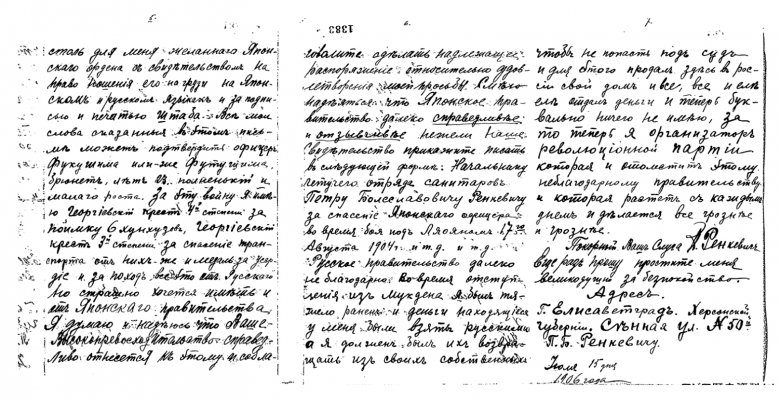 5.
столь для меня желаннаго Япон-
скаго ордена съ свидѣтельствомъ на
право ношенія его на груди на Япон-
скомъ и русскомъ языкахъ и за подпи-
сью и печатью Штаба. Всѣ мои
слова сказанныя въ этомъ пись-
мѣ можетъ подтвердить офицеръ
Фукушима или-же Футушима
брюнетъ, лѣтъ полненькій и
малаго роста. За эту войну я имѣ-
ю Георгіевскій крестъ 4й степени за
поимку 6 хунхузовъ, Георгіевскій
крестъ 3й степени за спасеніе тран-
спорта отъ нихъ-же и медаль за усер-
діе и за походъ все это отъ Русскаго
Но страшно хочется имѣть и
отъ Японскаго правительства
Я думаю и надѣюсь что Ваше-
Высокопревосходительство справед-
ливо отнесется къ этому и собла-
1383
6.
говолите сдѣлать надлежащее
распоряженіе относительно удов-
летворенія моей просьбы. Смѣю
надѣяться что Японское пра-
вительство далеко справедливѣе
и отзывчивѣе нежели Наше
Свидѣтельство прикажите писать
въ слѣдующей формѣ: Начальнику
летучаго отряда санитаровъ
Петру Болеславовичу Ренкевичу
за спасеніе Японскаго офицера
во время боя подъ Ляояномъ 17го
Августа 1904 г. и т.д. и т.д.
Русское правительство далеко
не благодарно. Во время отступ-
ленія изъ Мукдена я былъ тя-
жело раненъ и деньги находящіеся
у меня были взяты русскими
а я долженъ былъ ихъ возвра-
щать изъ своихъ собственныхъ
7.
чтобы не попасть подъ судъ
и для этого продалъ здѣсь въ рос-
сіи свой домъ и все, все и еле
елѣ отдалъ деньги и теперь бук-
вально ничего не имѣю, за
то теперь я организаторъ
революціонной партіи
которая и отомститъ этому
неблагодарному правительству
и которая растетъ съ каждымъ
днемъ и дѣлается все грознѣе
и грознѣе.
Покорный Вашъ Слуга П. Ренкевичъ
Еще разъ прошу простите меня
великодушно за безпокойство.
Адресъ
Г. Елисаветградъ. Херсонской
губерніи. Сѣнная ул. № 50й
П. Б. Ренкевичу.
Іюля 15 дня
1906 года